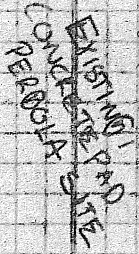 EXISTING
CONCRETE PAD
PERGOLA SITE